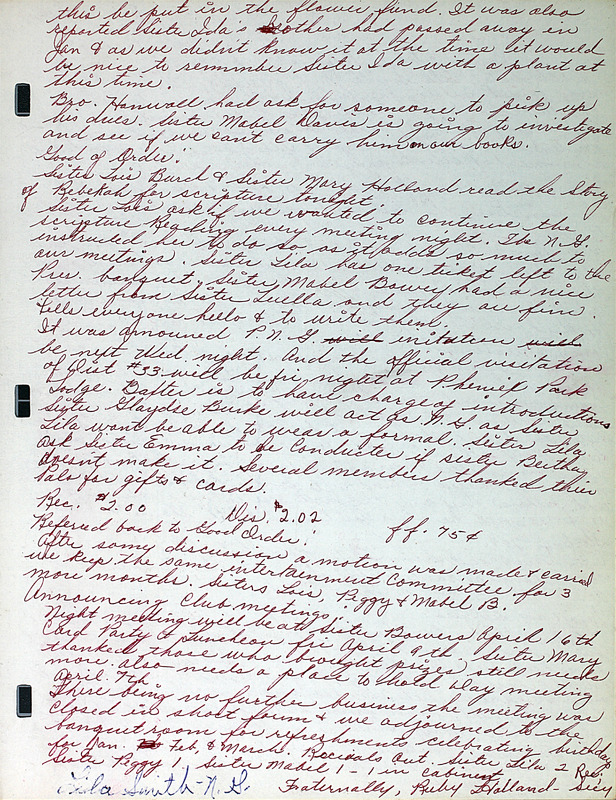 this be put in the flower fund. It was also
reported Sister Ida's Brother had passed away in
Jan & as we didn't know it at the time it would
be nice to remember Sister Ida with a plant at
this time.
Bro. Hanwall had ask for someone to pick up
his dues. Sister Mabel Davis is going to investigate
and see if we cant carry him on our books.
Good of Order:
Sister Lois Burch & Sister Mary Holland read the Story
of Rebekah for scripture tonight.
Sister Lois ask if we wanted to continue the
scripture Reading every meeting night. The N.G.
instructed her to do so as it adds so much to
our meetings. Sister Lila has one ticket left to the
Pres. banquet. Sister Mabel Bowey had a nice
letter from Sister Luella and they are fine.
Tells everyone hello & to write them.
It was announced P.N.G. will initation will
be next Wed. night. And the official visitation
of Dist #33 will be fri night at Park
Lodge. is to have charge of introductions
Sister Glaydse Burke will act as N.G. as Sister
Lila wont be able to wear a formal. Sister Lila
ask Sister Emma to be Conducter if sister Bertha
doesn't make it. Several members thanked their
Pals for gifts & cards.
Rec. $2.00 Dis. $2.02 ff. 75¢
Refered back to Good Order:
After some discussion a motion was made & caried
we keep the same intertainment Committee for 3
more months. Sisters Lois, Peggy & Mabel B.
Announcing Club meetings:
Night meeting will be at Sister Bowers April 16th
Card Party & Luncheon fri April 9th. Sister Mary
thanked those who brought prizes, still needs
more. also needs a place to hold day meeting
April 7th
There being no further business the meeting was
closed in short form & we adjourned to the
banquet room for refreshments celebrating birthdays
for Jan. Feb, & March. Recivals Out. Sister Lila 2 Reg.
Sister Peggy 1 Sister Mabel 1 - 1 in cabinet
Lila Smith - N.G. Fraternally, Ruby Holland - Sec.